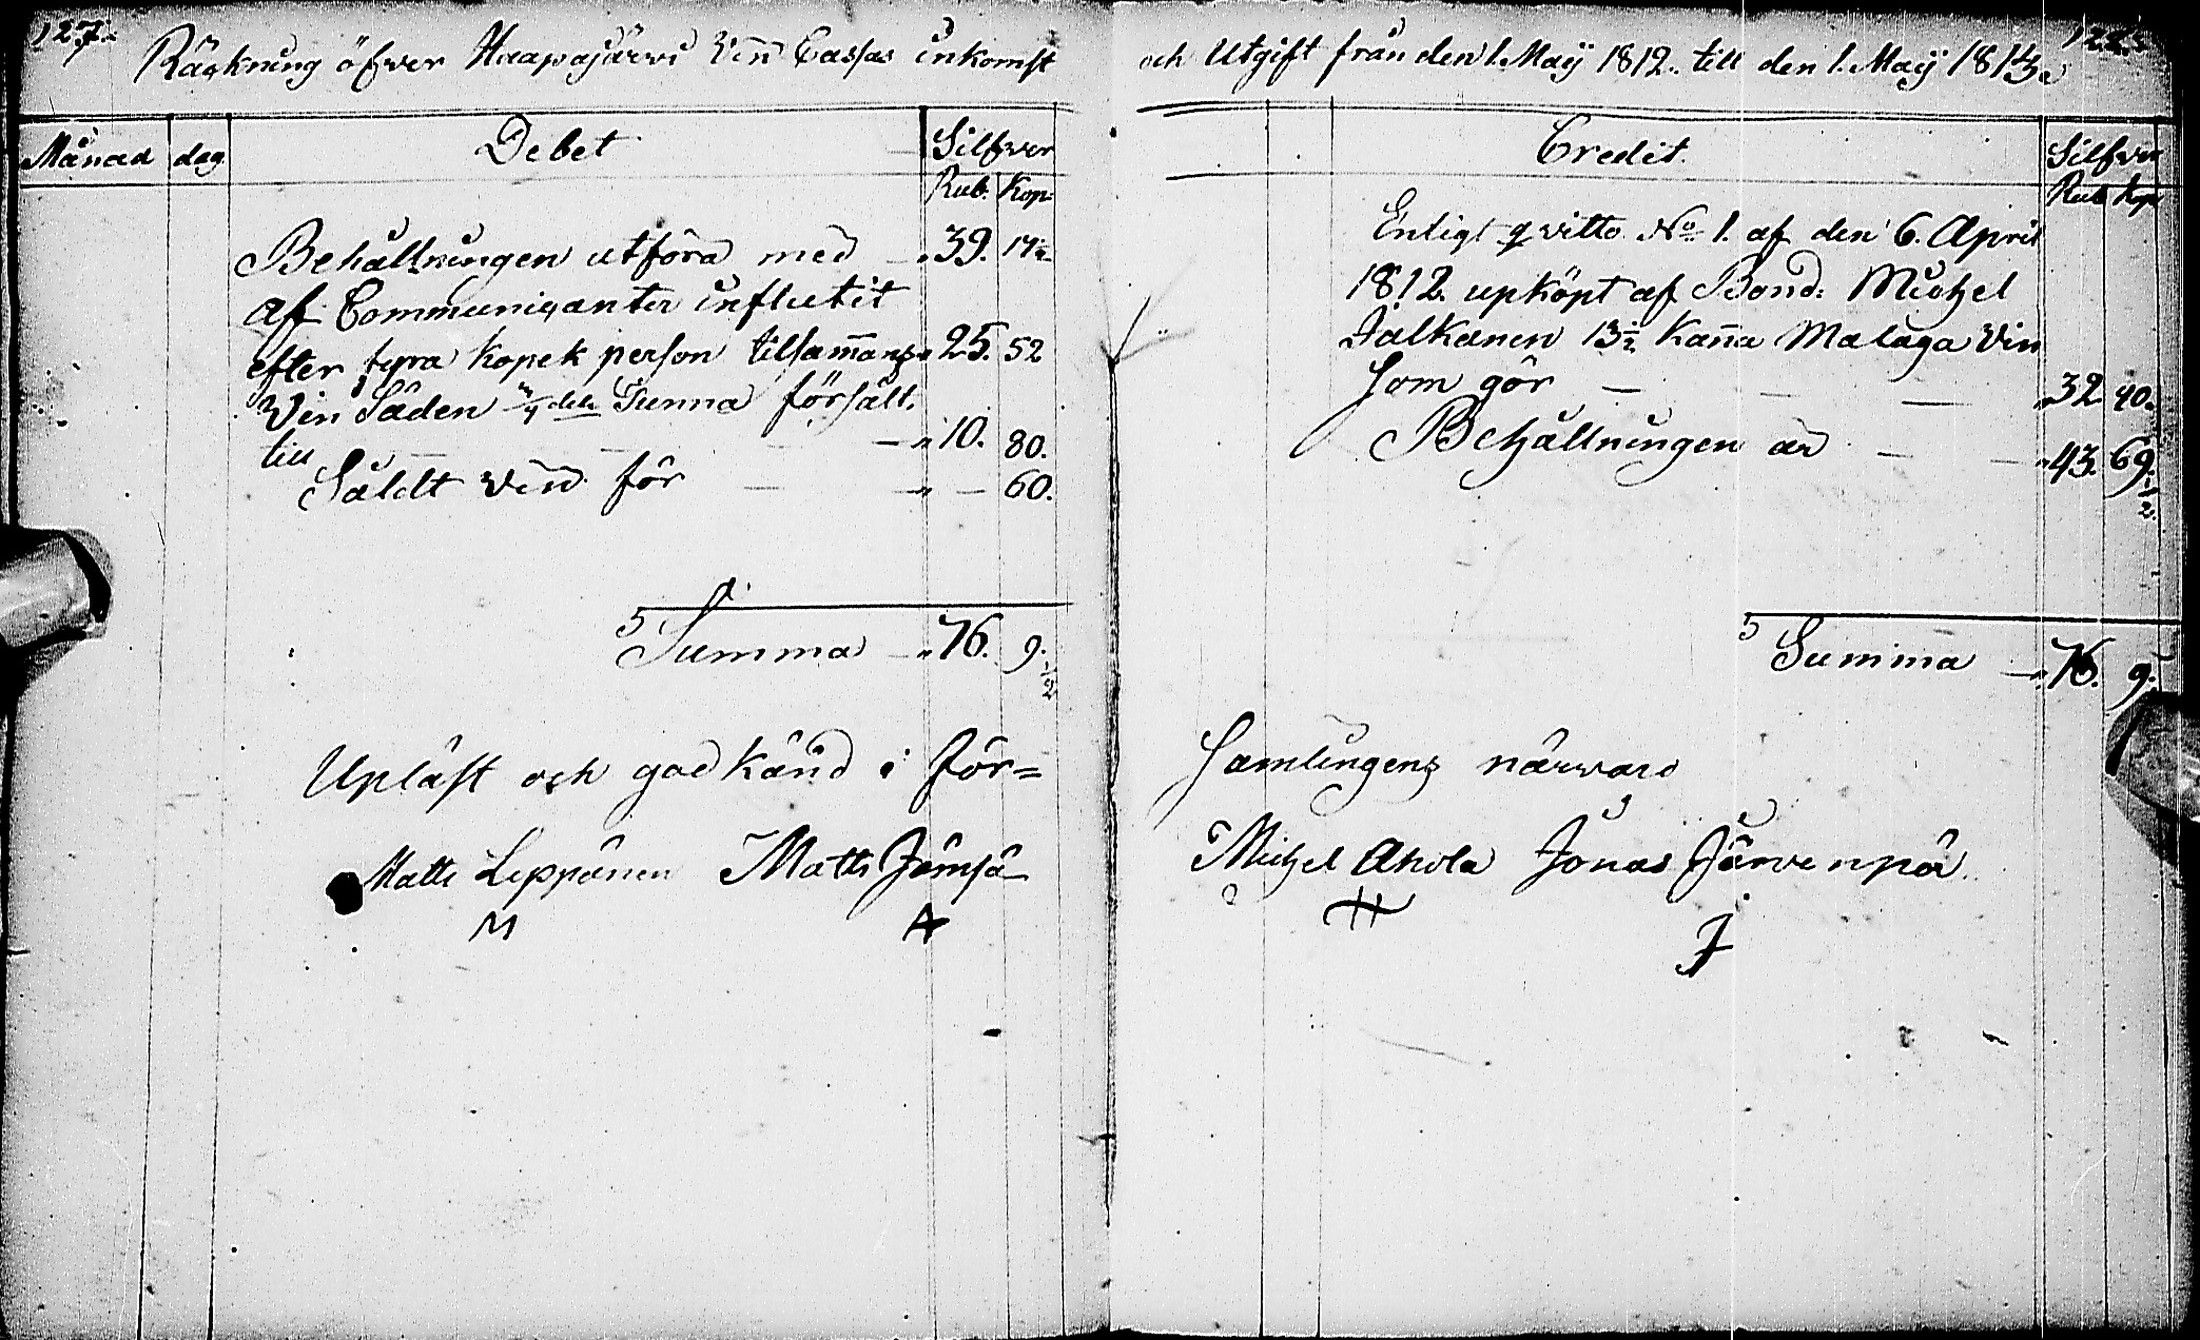 127.
Räckning öfver Haapajärvi Vin Cassas inkomst
Månad dag Debet Silfver
Rub. Kop.
Behållningen utföra med 39. 17½
af Communicanter influtit
efter fyra kopek person tilsamans 25. 52
Vin Säden Tunna försålt.
till 10. 80.
Såldt vin för — 60.
Summa 76. 9.½
Upläst och godkänd i För=
Matts Leppänen Matts Jämsä
M A
och Utgift från den 1. Maij 1812. till den 1. Maij 1813.
Credit. Silfver
Rub Kop
Enligt qvitto No 1. af den 6. April
1812. upköpt af Bond: Michel
Jalkanen 13½ Kanna Malaga Vin
som gör 32. 40.
Behållningen är 43. 69.½
Summa 76. 9.
Samlingens närvaro
Michel Ahola Jonas Järvenpää.
H J